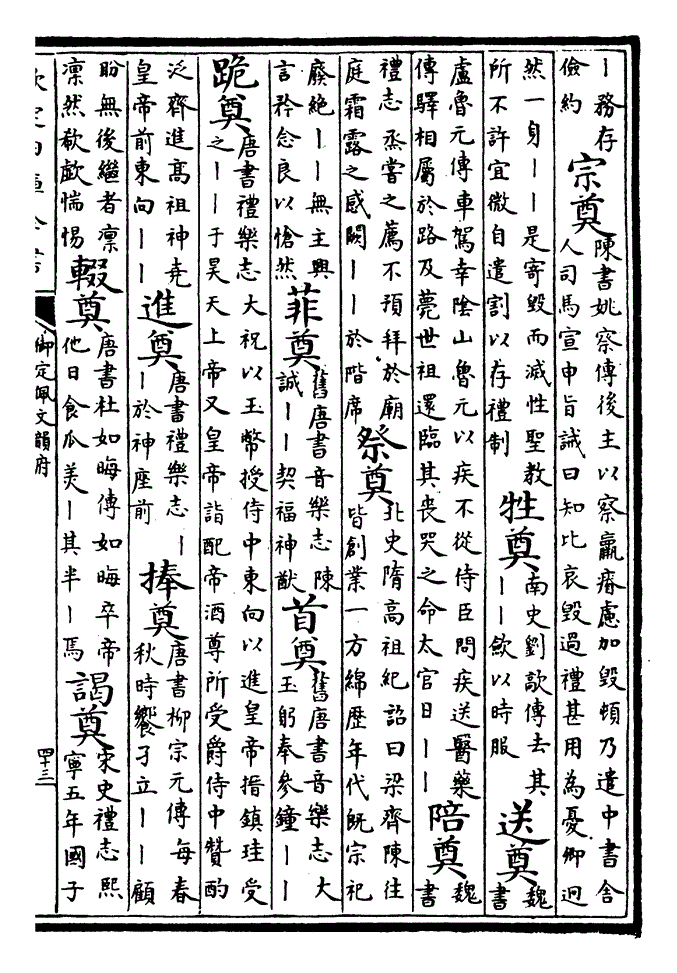 丨務存
儉約
宗奠
陳書姚察傳後主以察羸瘠慮加毀頓乃遣中書舍
人司馬宣申旨誡曰知比哀毀過禮甚用為憂卿迥
然一身丨丨是寄毀而滅性聖教
所不許宜微自遣割以存禮制
牲奠
南史劉歊傳去其
丨丨歛以時服
送奠
魏
書
盧魯元傳車駕幸陰山魯元以疾不從侍臣問疾送醫藥
傳驛相屬於路及薨世祖還臨其喪哭之命太官日丨丨
陪奠
魏
書
禮志烝嘗之薦不預拜於廟
庭霜露之感闕丨丨於階席
祭奠
北史隋高祖紀詔曰梁齊陳往
皆創業一方綿歷年代旣宗祀
廢絶丨丨無主興
言矜念良以愴然
菲奠
舊唐書音樂志陳
誠丨丨契福神猷
首奠
舊唐書音樂志大
玉躬奉參鐘丨丨
跪奠
唐書禮樂志大祝以玉幣授侍中東向以進皇帝搢鎮珪受
之丨丨于昊天上帝又皇帝詣配帝酒尊所受爵侍中贊酌
泛齊進髙祖神堯
皇帝前東向丨丨
進奠
唐書禮樂志丨
丨於神座前
捧奠
唐書柳宗元傳每春
秋時饗孑立丨丨顧
盼無後繼者凛
凛然欷歔惴惕
輟奠
唐書杜如晦傳如晦卒帝
他日食瓜美丨其半丨焉
謁奠
宋史禮志熙
寧五年國子
欽定四庫全書
御定佩文韻府
四十三